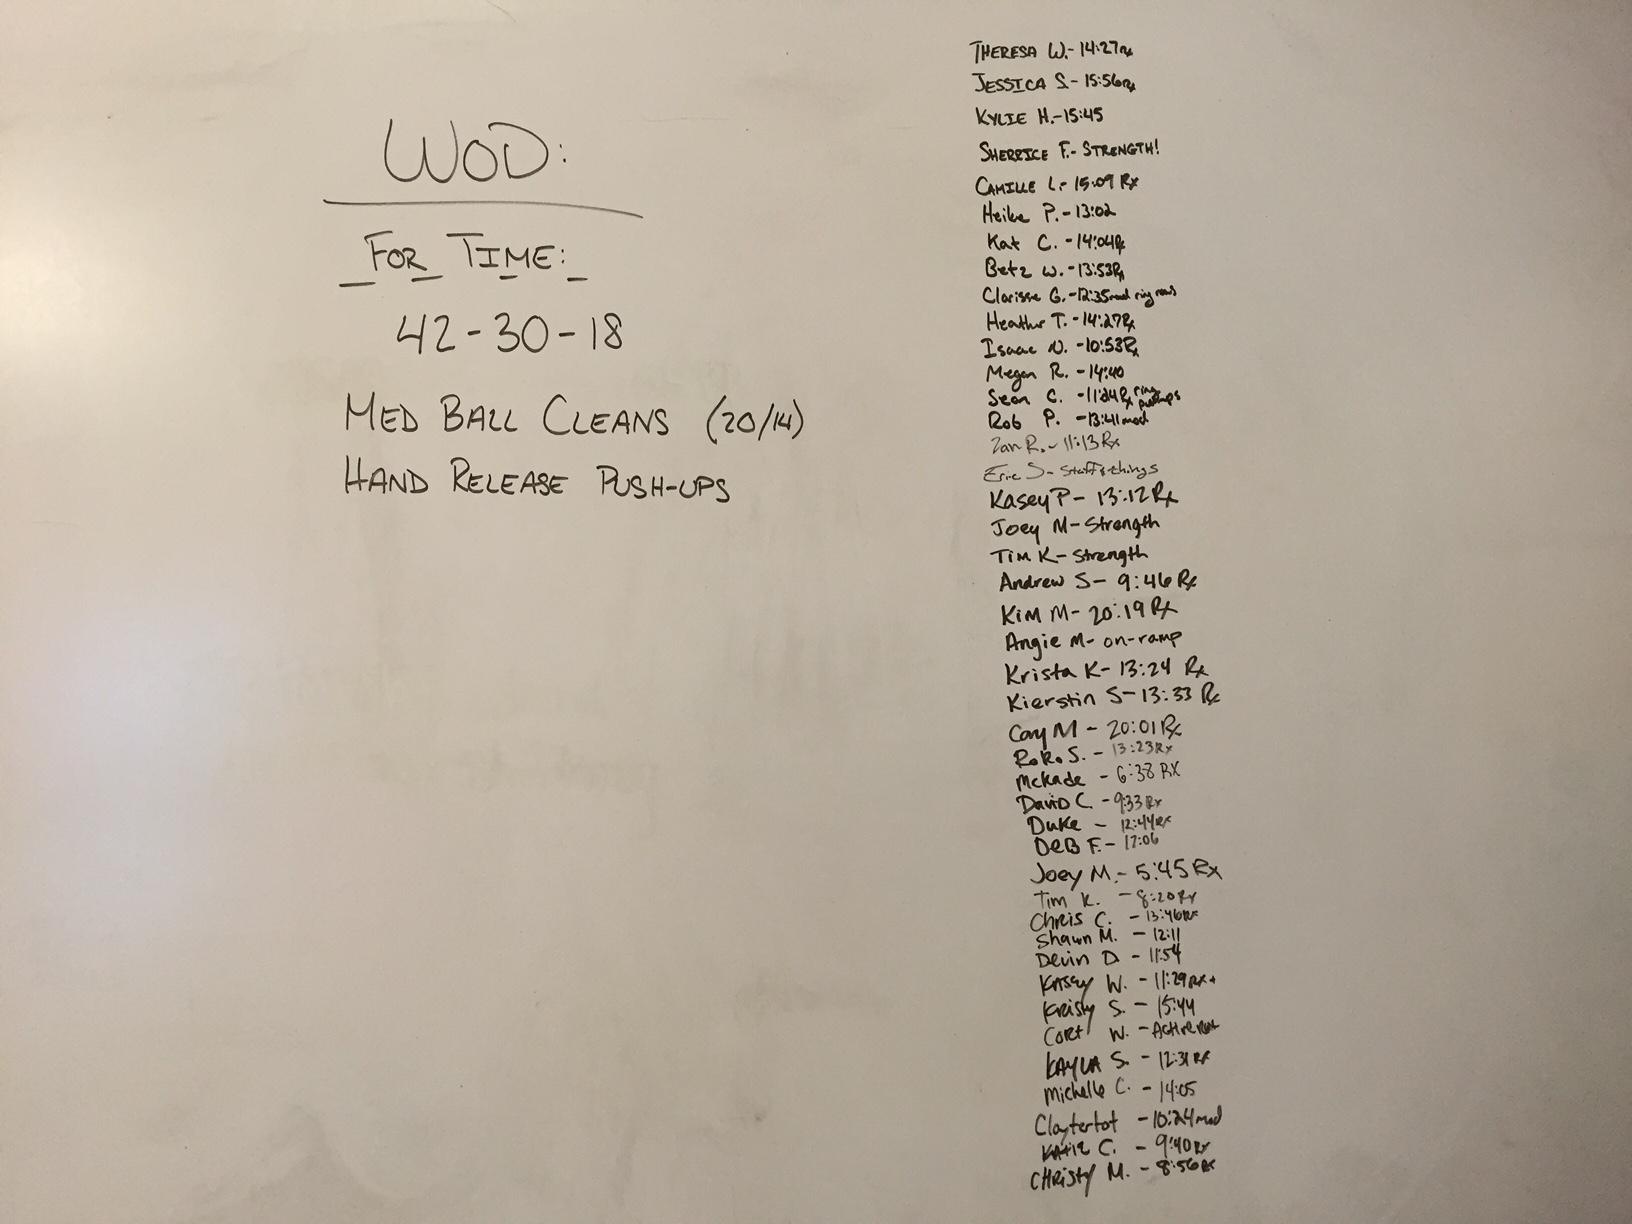 WOD:
FOR TIME:
42-30-18
MED BALL CLEANS (20/14)
HAND RELEASE PUSH-UPS
THERESA W.- 14:27Rx
JESSICA S.- 15:56Rx
KYLIE H.-15:45
SHERRICE F.- STRENGTH!
CAMILLE L.- 15:09 Rx
Heike P.-13:02
Kat C. -14:04Rx
Betz W.-13:53Rx
Clarisse G.-12:35mod ring rows
Heather T.-14:27Rx
Isaac N. -10:53Rx
Megan R. -14:40
Sean C. -11:24Rx ring pushups
Rob P. -13:41mod
Ian R. - 11:13 Rx
Eric S- Stuff & things
Kasey P- 13:12 Rx
Joey M- Strength
Tim K- Strength
Andrew S- 9:46 Rx
Kim M- 20:19 Rx
Angie M- on-ramp
Krista K- 13:24 Rx
Kierstin S- 13:33 Rx
Cary M - 20:01 Rx
RoRo S. - 13:23Rx
McKade - 6:38 RX
David C. - 9:33 Rx
Duke - 12:44Rx
DeB F. - 17:06
Joey M.- 5:45 Rx
Tim K. - 8:20 Rx
Chris C. - 13:46Rx
Shawn M. - 12:11
Devin D - 11:54
Kasey W. - 11:29 RX+
Kristy S. - 15:44
Cort W. - Active Rest
KAYLA S. - 12:31 RX
Michelle C. - 14:05
Claytertot -10:24 mod
KATIE C. - 9:40 Rx
CHRISTY M. - 8:56 Rx